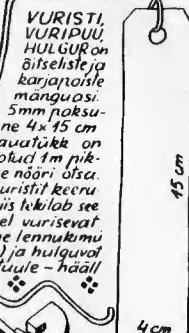 VURISTI,
VURIPUU,
HULGUR on
õitseliste ja
karjapoiste
mänguasi.
5mm paksu-
ne 4x15 cm
lauatükk on
1m pik-
se nööri otsa.
vuristit keeru-
iis tekitab see
el vurisevat
lennukimü
) ja hulguvat
tuule - hääli
15 cm
4 cm